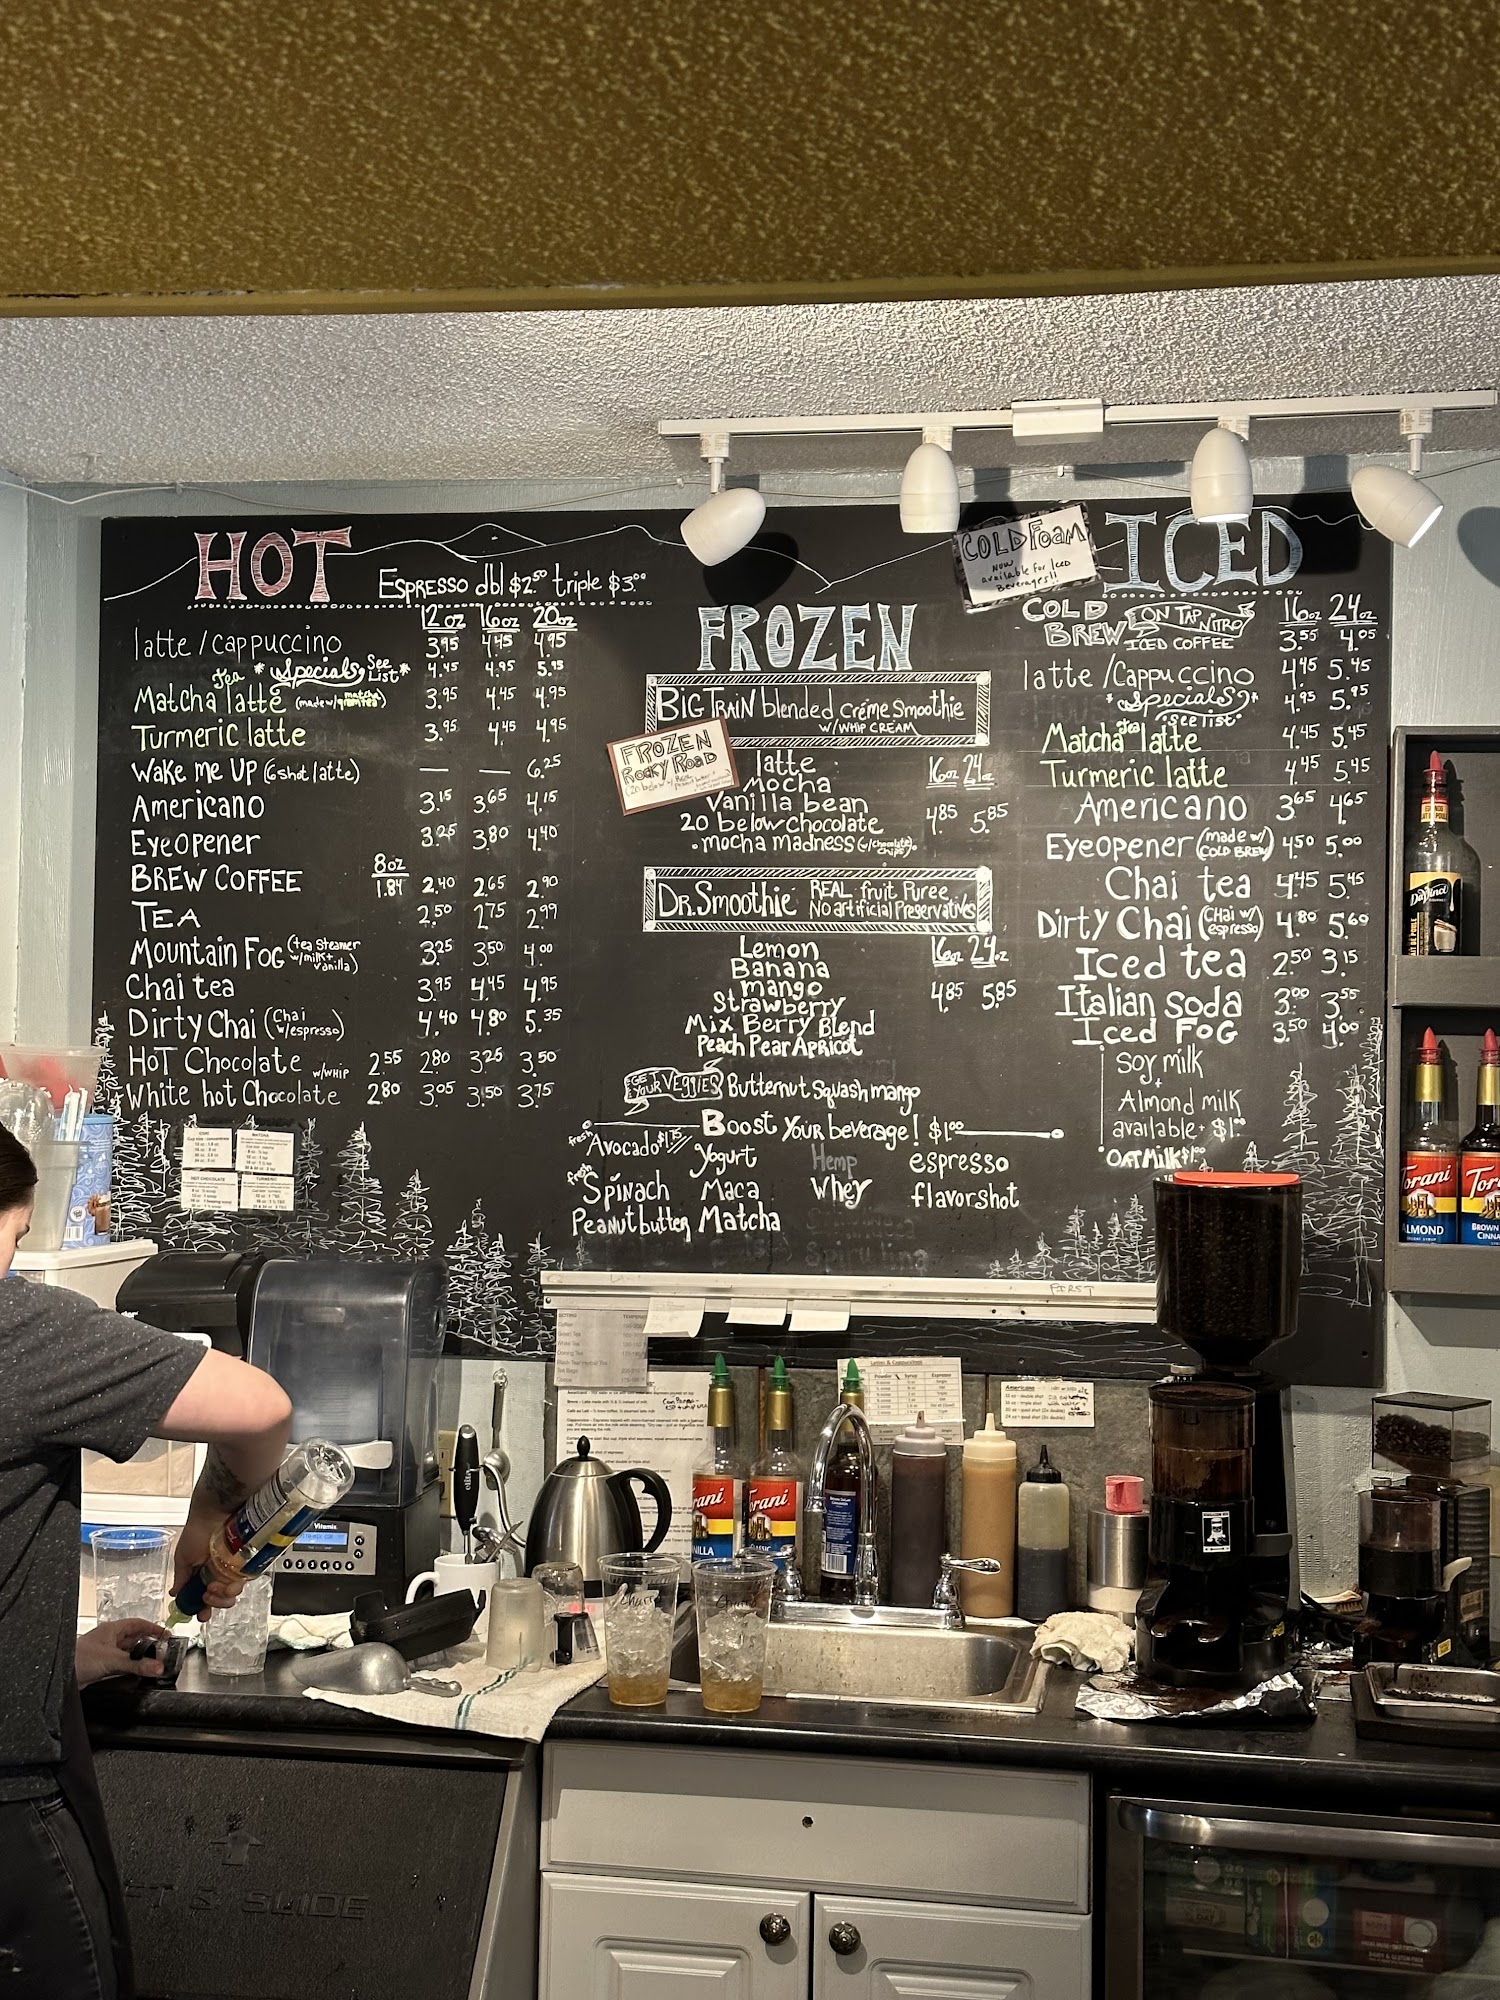 HOT
ESPRESSO dbl $2.50 triple $3.00
12 oz 16 oz 20oz
latte/cappuccino 3.95 4.45 4.95
*Specials* See List* 4.45 4.95 5.95
Matcha Tea latte (made w/ matcha green tea) 3.95 4.45 4.95
Turmeric latte 3.95 4.45 4.95
Wake me UP (6 shot latte) — — 6.25
Americano 3.15 3.65 4.15
Eyeopener 3.25 3.80 4.40
8oz
BREW COFFEE 1.84 2.40 2.65 2.90
TEA 2.50 2.75 2.99
Mountain FOG (tea steamer w/milk + vanilla) 3.25 3.50 4.00
Chai tea 3.95 4.45 4.95
Dirty Chai (Chai w/espresso) 4.40 4.80 5.35
HOT Chocolate w/WHIP 2.55 2.80 3.25 3.50
White hot Chocolate 2.80 3.05 3.50 3.75
FROZEN
BIG TRAIN blended créme Smoothie
w/WHIP CREAM
FROZEN
Rocky Road
latte 16oz 24oz
Mocha
Vanilla bean
20 below chocolate 4.85 5.85
• mocha madness (w/chocolate chips) •
DR. Smoothie REAL fruit Puree
No artificial Preservatives
Lemon 16oz 24oz
Banana
mango 4.85 5.85
Strawberry
Mix Berry Blend
Peach Pear Apricot
GET YOUR VEGGIES Butternut Squash mango
Boost your beverage! $1.00
fresh Avocado $1.75 Yogurt Hemp espresso
fresh Spinach Maca Whey flavorshot
Peanut butter Matcha
COLD Foam
NOW
available for Iced
Beverages!!
ICED
16oz 24oz
COLD BREW ON TAP NITRO
ICED COFFEE 3.55 4.05
latte/Cappuccino 4.45 5.45
*Specials* 4.95 5.95
*See list*
Matcha tea latte 4.45 5.45
Turmeric latte 4.45 5.45
Americano 3.65 4.65
Eyeopener (made w/ COLD BREW) 4.50 5.00
Chai tea 4.45 5.45
Dirty Chai (CHai w/ espresso) 4.80 5.60
Iced tea 2.50 3.15
Italian Soda 3.00 3.55
Iced FOG 3.50 4.00
Soy milk
+
Almond milk
available • $1.00
• OAT Milk $1.00
FIRST
DaVinci
Torani
ALMOND
Torani
BROWN
CINNA
Torani
VANILLA
Torani
CLASSIC
Vitamix
Latte & Cappuccinos
Powder Syrup Espresso
Americano
Charro
LIFT & SLIDE